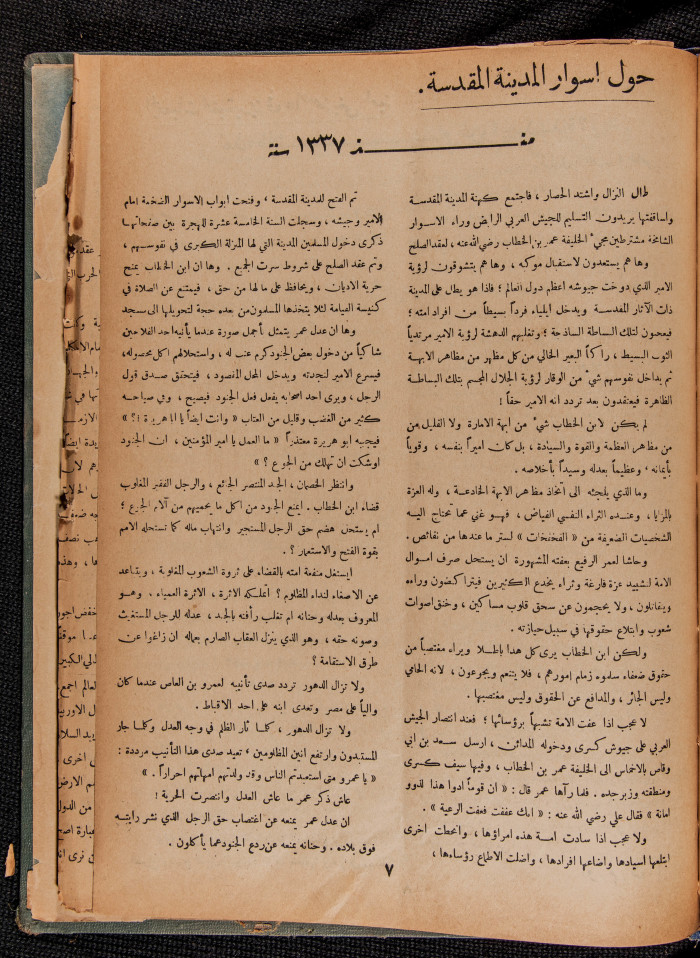 حول اسوار المدينة المقدسة.
منذ ١٣٣٧ سنة
طال النزال واشتد الحصار ، فاجتمع كهنة المدينة المقدسة
واساقفتها يريدون التسليم للجيش العربي الرابض وراء الاسوار
الشامخة مشترطين مجيء الخليفة عمر بن الخطاب رضي الله عنه ، لعقد الصلح
وها هم يستعدون لاستقبال موكبه ، وها هم يتشوقون لرؤية
الامير الذي دوخت جيوشه اعظم دول العالم ؛ فاذا هو يطل على المدينة
ذات الآثار المقدسة ويدخل ايلياء فرداً بسيطاً من افراد امته ؛
فيعجبون لتلك البساطة الساذجة ؛ وتغلبهم الدهشة لرؤية الامير مرتدياً
الثوب البسيط ، راكباً البعير الخالي من كل مظهر من مظاهر الابهة
ثم يداخل نفوسهم شيء من الوقار لرؤية الجلال المجسم بتلك البساطة
الظاهرة فيعتقدون بعد تردد انه الامير حقاً !
لم يكن لابن الخطاب شيء من ابهة الامارة ولا القليل من
من مظاهر العظمة والقوة والسيادة ، بل كان اميراً بنفسه ، وقوياً
بأيمانه ، وعظيماً بعدله وسيداً بأخلاصه .
وما الذي يلجئه الى اتخاذ مظاهر الابهة الخادعة ، وله العزة
بالمزايا ، وعنده الثراء النفسي الفياض ، فهو غني عما تحتاج اليه
الشخصيات الضعيفة من « الفخفخات » لستر ما عندها من نقائص .
وحاشا لعمر الرفيع بعفته المشهورة ان يستحل صرف اموال
الامة لتشييد عزة فارغة وثراء يخدع الكثيرين فيتراكضون وراءه
ويتفانلون ، ولا يحجمون عن سحق قلوب مساكين ، وخنق اصوات
شعوب وابتلاع حقوقها في سبيل حيازته .
ولكن ابن الخطاب يرى كل هذا باطلا ويراء مغتصباً من
حقوق ضعفاء سلموه زمام امورهم ، فلا يتنعم ويجوعون ، لانه الحامي
وليس الجائر ، والمدافع عن الحقوق وليس مغتصبها .
لا عجب اذا عفت الامة تشبهاً برؤسائها ؛ فعند انتصار الجيش
العربي على جيوش كسرى ودخوله المدائن ، ارسل سعد بن ابي
وقاص بالاخماس الى الخليفة عمر بن الخطاب ، وفيها سيف كسرى
ومنطقته وزبرجده . فلما رآها عمر قال : « ان قوماً ادوا هذا لذوو
امانة » فقال علي رضي الله عنه : « انك عففت فعفت الرعية » .
ولا عجب اذا سادت امة هذه امراؤها ، وانحطت اخرى
ابتلعها اسيادها واضاعها افرادها ، واضلت الاطماع رؤساءها ،
تم الفتح للمدينة المقدسة ، وفتحت ابواب الاسوار الضخمة امام
الامير وجيشه ، وسجلت السنة الخامسة عشرة للهجرة بين صفحاتها
ذكرى دخول المسلمين المدينة التي لها المنزلة الكبرى في نفوسهم ،
وتم عقد الصلح على شروط سرت الجميع . وها ان ابن الخطاب يمنح
حرية الاديان ، ويحافظ على مالها من حق ، فيمتنع عن الصلاة في
كنيسة القيامة لئلا يتخذها المسلمون من بعده حجة لتحويلها الى مسجد
وها ان عدل عمر يتمثل بأجمل صورة عندما يأتيه احد الفلاحين
شاكياً من دخول بعض الجنود كرم عنب له ، واستحلالهم اكل محصوله،
فيسرع الامير لنجدته ويدخل المحل المقصود ، فيتحقق صدق قول
الرجل ، ويرى احد اصحابه يفعل فعل الجنود فيصيح ، وفي صياحه
كثير من الغضب وقليل من العتاب « وانت ايضاً يا ابا هريرة !؟ »
فيجيبه ابو هريرة معتذراً « ما العمل يا امير المؤمنين ، ان الجنود
اوشكت ان تهلك من الجوع ؟ »
وانتظر الخصمان ، الجند المنتصر الجائع ، والرجل الفقير المغلوب
قضاء ابن الخطاب . ايمنع الجنود من اكل ما يحميهم من آلام الجوع ؛
ام يستحل هضم حق الرجل المستجير وانتهاب ماله كما تستحله الامم
بقوة الفتح والاستعمار ؟ .
ايستغل منفعة امته بالقضاء على ثروة الشعوب المغلوبة ، ويتقاعد
عن الاصغاء لنداء المظلوم ؟ أتملكه الاثرة ، الاثرة العمياء ، وهو
المعروف بعدله وحنانه ام تغلب رأفته بالجند ، عدله للرجل المستغيث
وصونه حقه ، وهو الذي ينزل العقاب الصارم بعماله ان زاغوا عن
طرق الاستقامة ؟
ولا تزال الدهور تردد صدى تأنيبه لعمرو بن العاص عندما كان
والياً على مصر وتعدى ابنه على احد الاقباط .
ولا تزال الدهور ، كلما ثار الظلم في وجه العدل وكلما جار
المستبدون وارتفع انين المظلومين ، تعيد صدى هذا التأنيب مرددة :
« يا عمرو متى استعبدتم الناس وقد ولدتهم امهاتهم احراراً . »
عاش ذكر عمر ما عاش العدل وانتصرت الحرية !
ان عدل عمر يمنعه عن اغتصاب حق الرجل الذي نشر رايته
فوق بلاده . وحنانه يمنعه عن ردع الجنود عما يأكلون .
٧